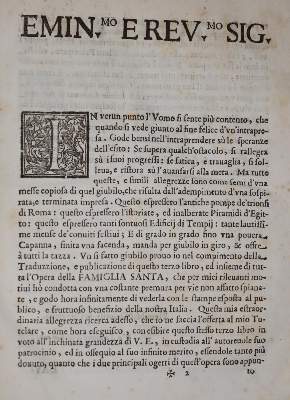 EMIN.MO E REV.MO SIG.
IN verun punto l'Vomo si sente più contento, che
quando si vede giunto al fine felice d'vn'intrapre-
sa. Gode bensì nell'intraprendere sù le speranze
dell'esito; Se supera qualch'ostacolo, si rallegra
sù i suoi progressi: se fatica, e trauaglia, si sol-
leua, e ristora sù l'auanzarsi alla meta. Ma tutte
queste, e simili allegrezze sono come semi d'vna
messe copiosa di quel giubilo, che risulta dall'adempimento d'vna sospi-
rata, e terminata impresa: Questo espressero l'antiche pompe de' trionfi
di Roma: questo espressero l'istoriate, ed inalberate Piramidi d'Egit-
to: questo espressero tanti sontuosi Edificj di Tempij: tante lautissi-
me mense de' conuiti festiui; E di grado in grado fino vna pouera
Capanna, finita vna facenda, manda per giubilo in giro, & offre
à tutti la tazza. Vn sì fatto giubilo prouo io nel compimento della
Traduzione, e publicazione di questo terzo libro, ed insieme di tut-
ta l'Opera della FAMIGLIA SANTA, che per miei rileuanti mo-
tiui hò condotta con vna costante premura per vie non affatto spiana-
te, e godo hora infinitamente di vederla con le stampe esposta al pu-
blico, e fruttuoso benefizio della nostra Italia. Questa mia estraor-
dinaria allegrezza riceua adesso, che io ne faccia l'offerta al mio Tu-
telare, come hora eseguisco, con esibire questo stesso terzo libro in
voto all'inchinata grandezza di V. E., in custodia all'autoreuole suo
patrocinio, ed in ossequio al suo infinito merito, essendole tanto più
douuto, quanto che i due principali ogetti di quest'opera sono appun-
✠ 2 to